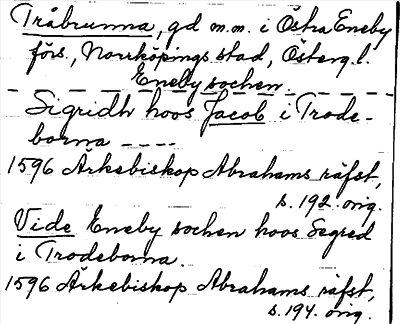 Tråbrunna, gd m.m. i Östra Eneby
förs., Norrköpings stad, Östergl.
Eneby sochen
Sigridh hoos Jacob i Trode-
borna ----
1596 Ärkebiskop Abrahams räfst,
s. 192. orig.
Vide Eneby sochen hoos Segred
i Trodeborna.
1596 Ärkebiskop Abrahams räfst,
s. 194. orig.